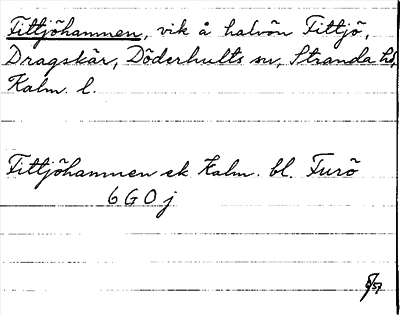 Fittjöhamnen, vik å halvön Fittjö,
Dragskär, Döderhults sn, Stranda hd,
Kalm. l.
Fittjöhamnen ek Kalm. bl. Furö
6 G O j